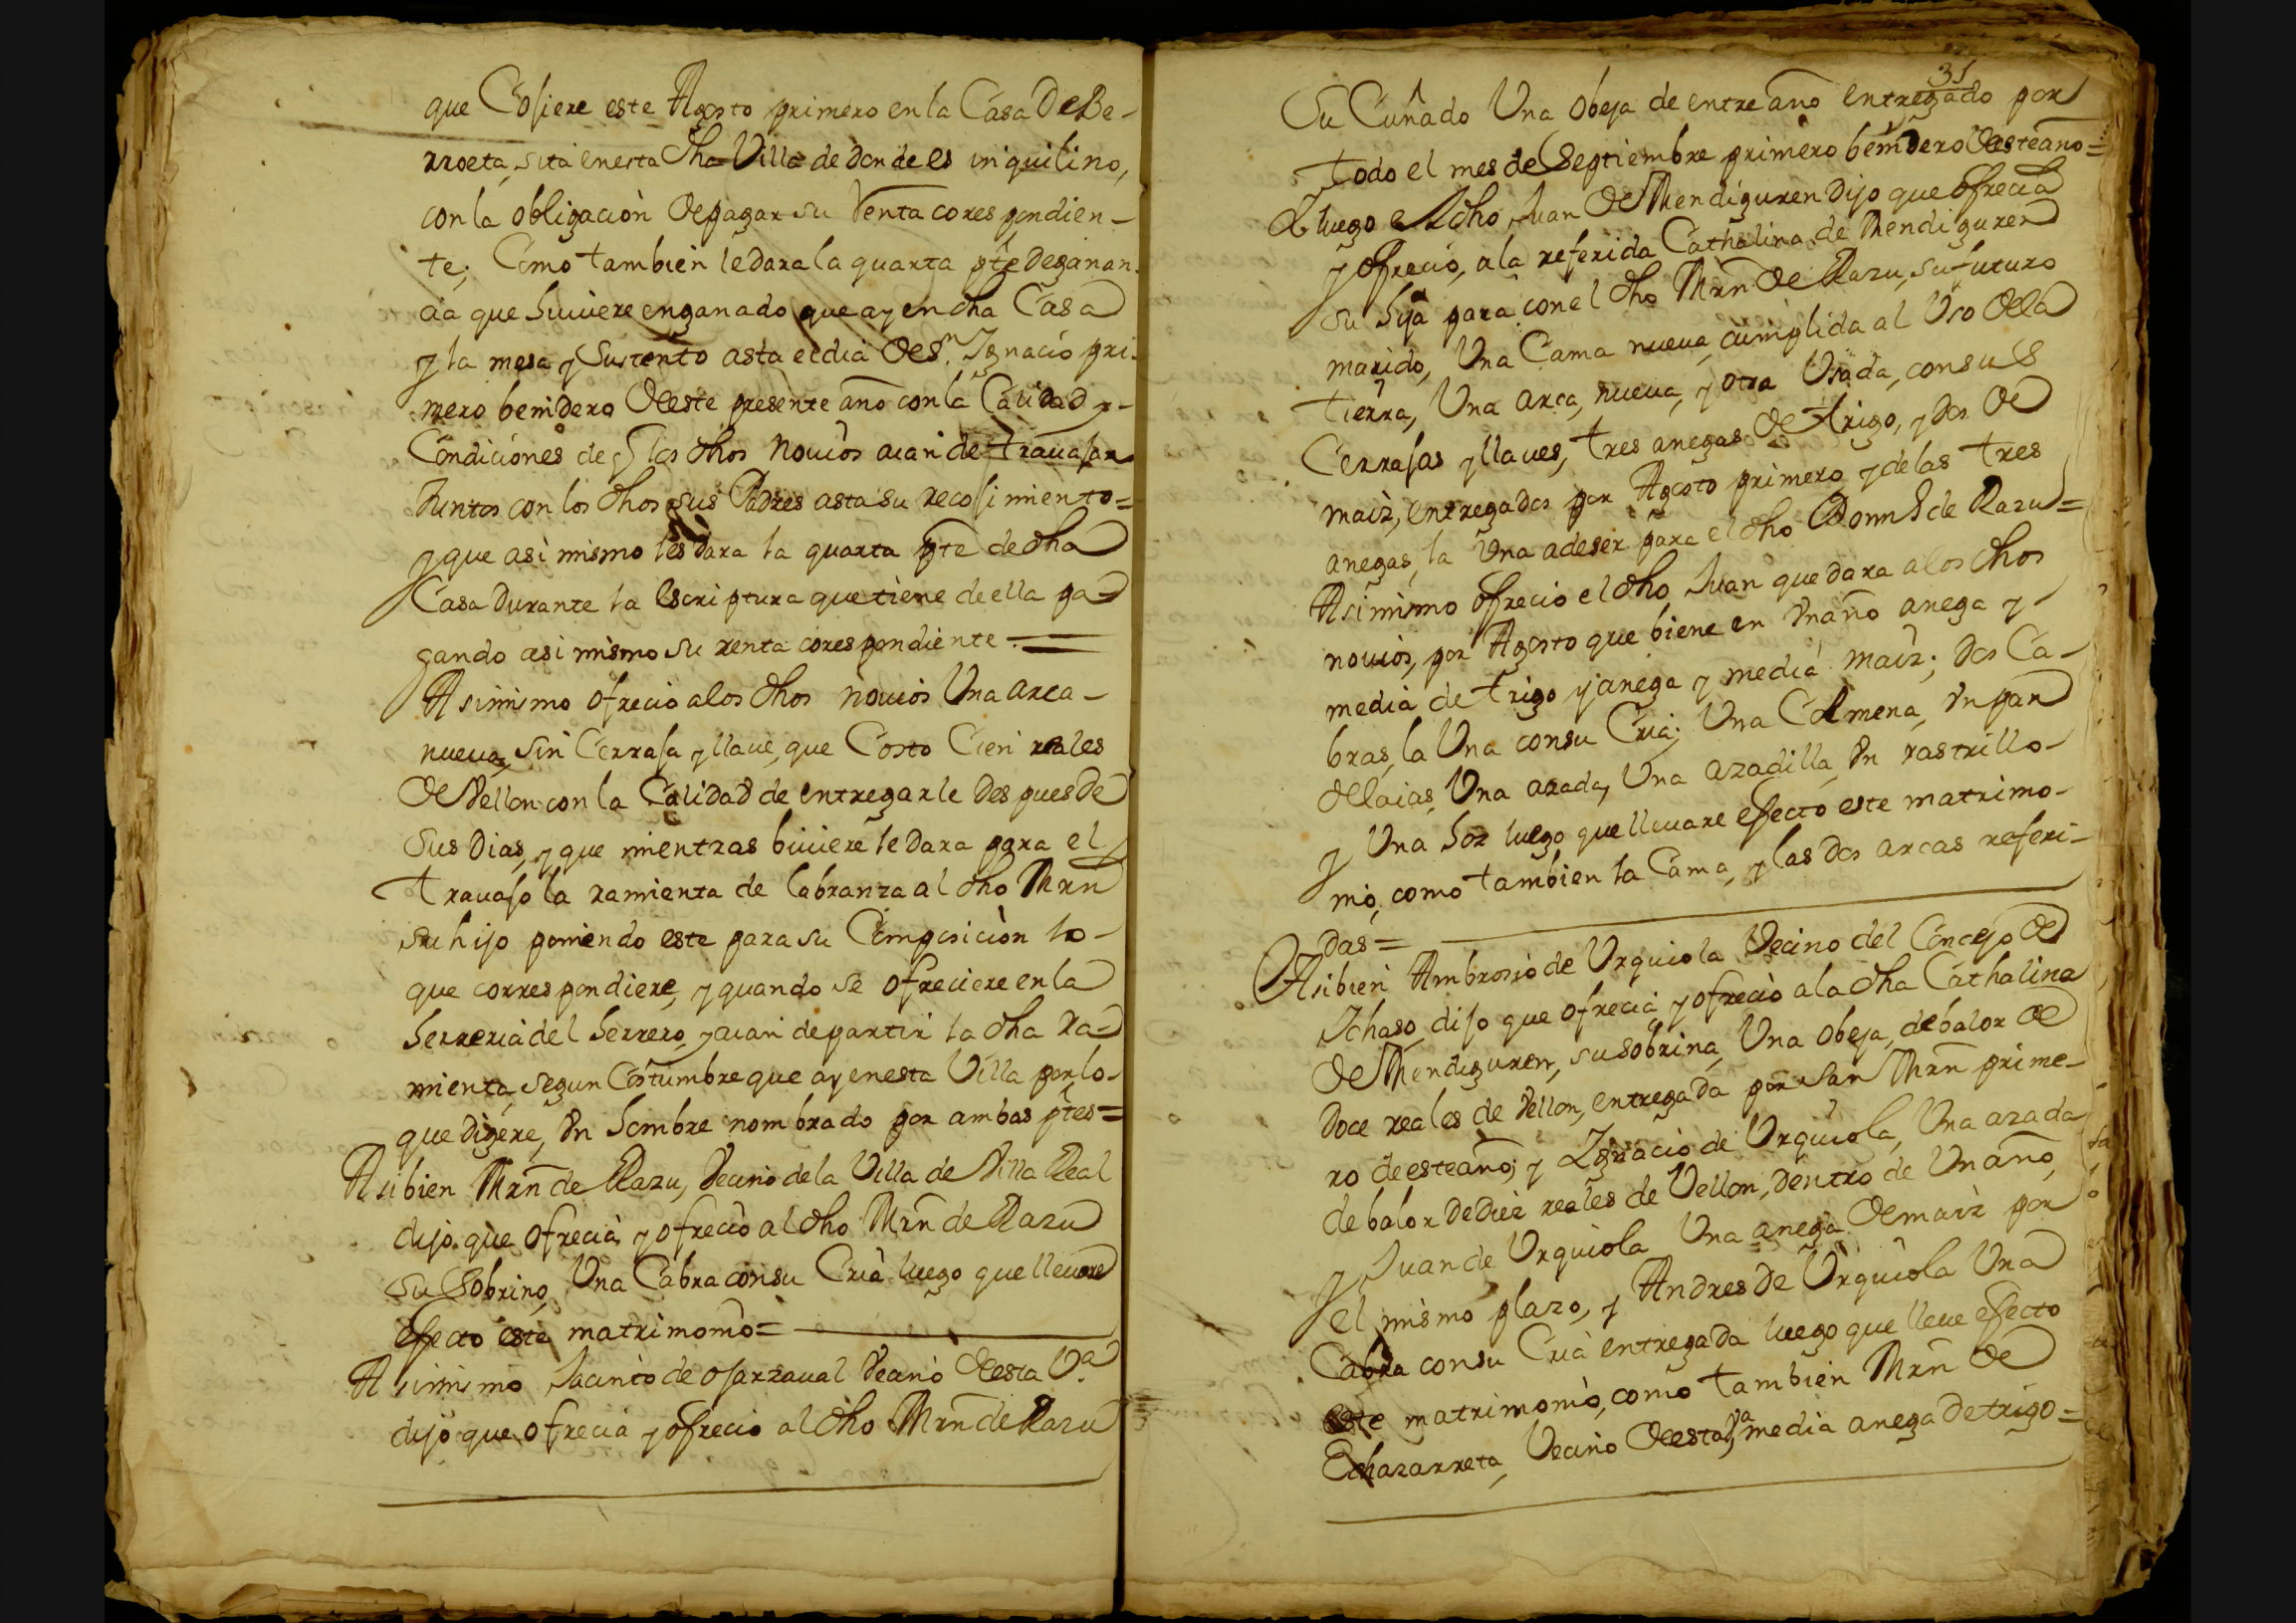 que Cosiere este Agosto primero en la Casa De Be-
rroeta, sita en esta dha Villa de donde es inquilino,
con la obligación de pagar su Renta corespondien-
te; Como tambien le dara la quarta pte de ganan-
cia que huuiere en ganado que ay en dha Casa
y la mesa y sustento asta el dia de Sn. Ignacio pri-
mero benidero de este presente año con la Calidad y-
Condiciones de q los dhos Nouios aian de trauasar
Juntos con los dhos sus Padres asta su recosimiento=
y que asi mismo les dara la quarta pte de dha
Casa Durante la escriptura que tiene de ella pa-
gando asi mismo su renta corespondiente.=
Asimismo ofrecio a los dhos nouios Una arca-
nueua, sin Cerrasa y llaue, que Costo Cien reales
de Vellon con la Calidad de entregarle Des pues de
sus Dias, y que mientras biuiere le dara para el
trauaso la ramienta de labranza al dho Mrn
su hijo poniendo este para su Composición lo-
que correspondiere, y quando se ofreciere en la
herreria del herrero, y aian de partir la dha Ra-
mienta, segun Costumbre que ay en esta Villa por lo-
que Digere, Un hombre nombrado por ambas ptes=
Asibien Mrn de Razu, Vecino de la Villa de Villa Real
dijo que ofrecia y ofrecio al dho Mrn de Razu
su Sobrino, Una Cabra con su Cria luego que lleuare
efecto este matrimonio=
Asimismo Jacinto de osarzaual Vecino de esta Va.
dijo que ofrecia y ofrecio al dho Mrn de Razu
31
Su Cuñado Una obeja de entre año entregado por
todo el mes de Septiembre primero benidero de este año=
Y luego el dho Juan de Mendiguren Dijo que ofrecia
y ofrecio, a la referida Cathalina de Mendiguren
su hija para con el dho Mrn de Razu, su futuro
marido, Una Cama nueua cumplida al Uso de la
tierra, Una arca, nueua, y otra Usada, con sus
Cerrasas y llaues, tres anegas de trigo, y dos de
maiz, entregados por Agosto primero y de las tres
anegas, la Una a de ser para el dho de Razu=
Asimismo ofrecio el dho Juan que dara a los dhos
nouios, por Agosto que biene en Un año anega y
media de trigo y anega y media maiz; dos Ca-
bras, la Una con su Cria; Una Colmena, Un par
de laias, Una azada, Una azadilla, Un rastrillo-
y Una hoz luego que lleuare efecto este matrimo-
nio, como tambien la Cama, y las dos arcas referi-
das=
Asibien Ambrosio de Urquiola Vecino del Concejo de
Ichaso, diso que ofrecia y ofrecio a la dha Cathalina
de Mendiguren, su sobrina, Una obeja, de balor de
Doce reales de Vellon, entregada por San Mrn prime-
ro de este año; y Ignacio de Urquiola, Una azada
de balor de Diez reales de Vellon, dentro de Un año,
y Juan de Urquiola Una anega de maiz por
el mismo plazo, y Andres de Urquiola Una
Cabra con su Cria entregada luego que lleue efecto
este matrimonio, como tambien Mrn de
Echazarreta, Vecino de esta Va, media anega de trigo=